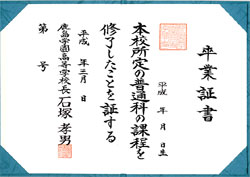 卒業証書
平成 年 月 日生
本校所定の普通科の課程を
修了したことを証する
平成 年三月 日
鹿島学園高等学校長 石塚孝男
第 号